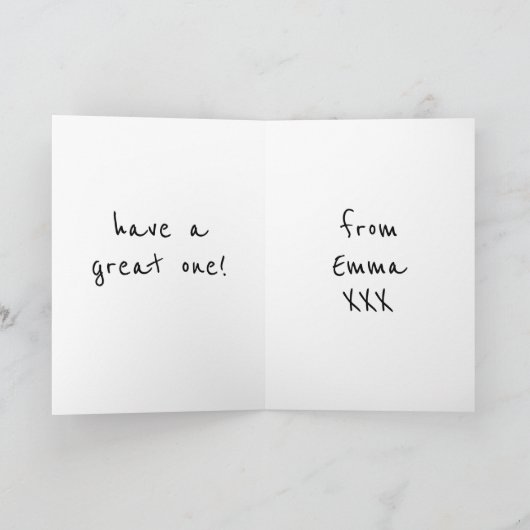 have a
great one!
from
Emma
XXX